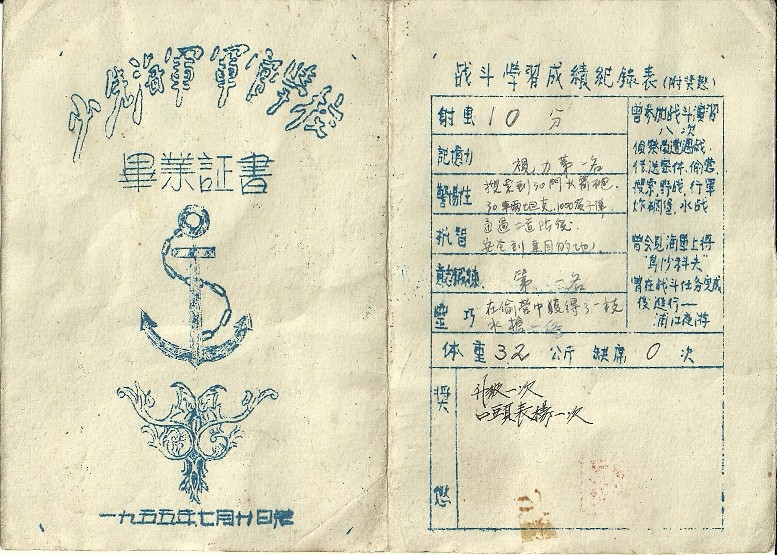 少先海軍軍官學校
畢業証書
一九五五年七月廿日
战斗学習成績紀錄表(附奖惩)
射击 10 分
記憶力 視力第一名
警惕性 搜索到30門火箭砲.
30車兩坦克,1000發子彈
机智 通過二道防線.
安全到達目的地.
第二名
灵巧 在偷营中獲得了一枝
水搶
曾参加战斗演習
八次
侦察局遭遇战
信送密件,偷营
搜索,野战,行軍
炸碉堡,水战
曾会見海軍上將
"烏沙科夫"
曾在战斗任务完成
後進行——
浦江夜游
体重 32 公斤 缺席 0 次
奖 升级一次
口頭表揚一次
惩